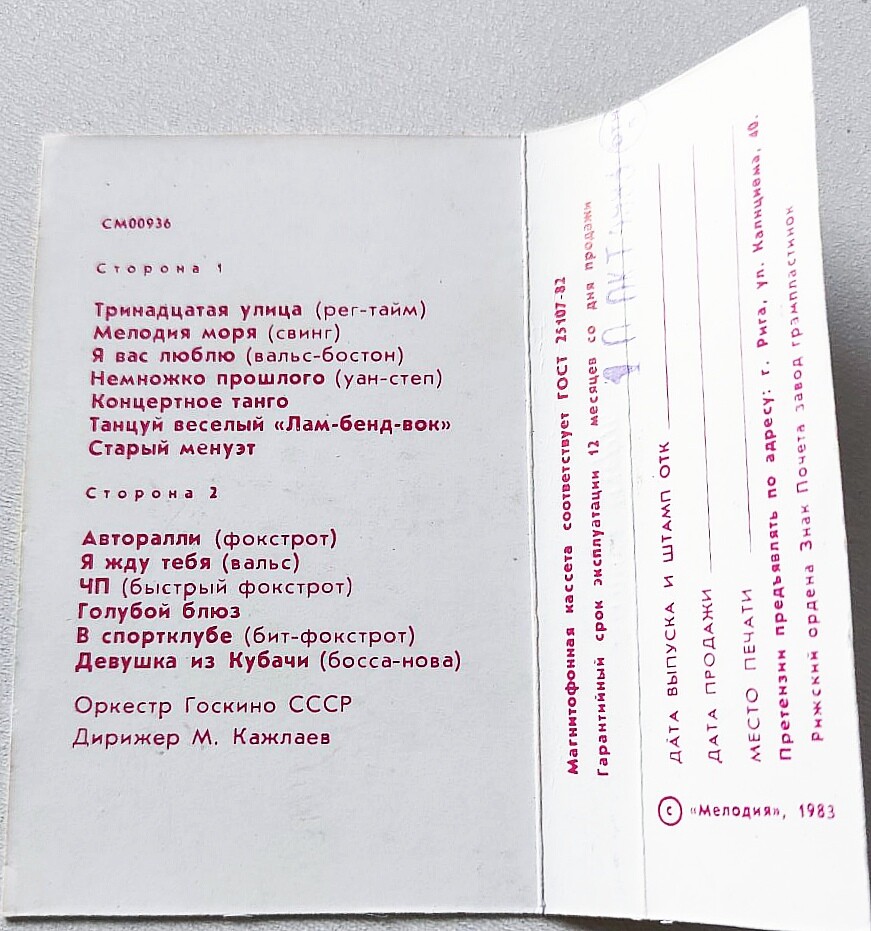 СМ00936
Сторона 1
Тринадцатая улица (рег-тайм)
Мелодия моря (свинг)
Я вас люблю (вальс-бостон)
Немножко прошлого (уан-степ)
Концертное танго
Танцуй веселый «Лам-бенд-вок»
Старый менуэт
Сторона 2
Авторалли (фокстрот)
Я жду тебя (вальс)
ЧП (быстрый фокстрот)
Голубой блюз
В спортклубе (бит-фокстрот)
Девушка из Кубачи (босса-нова)
Оркестр Госкино СССР
Дирижер М. Кажлаев
Магнитофонная кассета соответствует ГОСТ 25107-82
Гарантийный срок эксплуатации 12 месяцев со дня продажи
ДАТА ВЫПУСКА И ШТАМП ОТК
ДАТА ПРОДАЖИ
МЕСТО ПЕЧАТИ
Претензии предъявлять по адресу: г. Рига, ул. Калнциема, 40.
Рижский ордена Знак Почета завод грампластинок
© «Мелодия», 1983